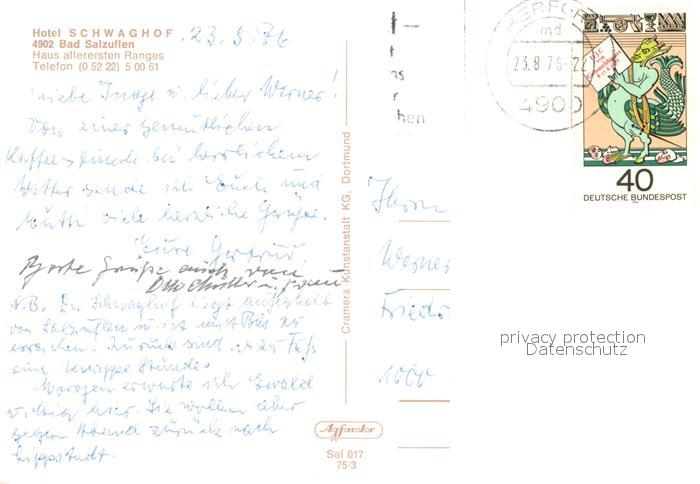 Hotel SCHWAGHOF
4902 Bad Salzuflen
Haus allerersten Ranges
Telefon (0 52 22) 5 00 61
23.8.76
Liebe Inge u. lieber Werner!
Von einer gemütlichen
Kaffeestunde bei herrlichem
Wetter sende ich Euch und
Mutti viele herzliche Grüße.
Eure Gertrud.
Grüße auch von
Otto u. Frau
N.B. Der Schwaghof liegt außerhalb
von Salzuflen u. ist mit Bus zu
erreichen. Zurück sind es zu Fuß
eine knappe Stunde.
Morgen erwarte ich Ewald
hier. Sie wollen aber
gegen Abend zurück nach
Lippstadt.
Cramers Kunstanstalt KG, Dortmund
Agfacolor
Sal 017
75/3
hen
HERFOR
md
23.8.76-22
4900
40
DEUTSCHE BUNDESPOST
Werner
Friedr
1000
privacy protection
Datenschutz